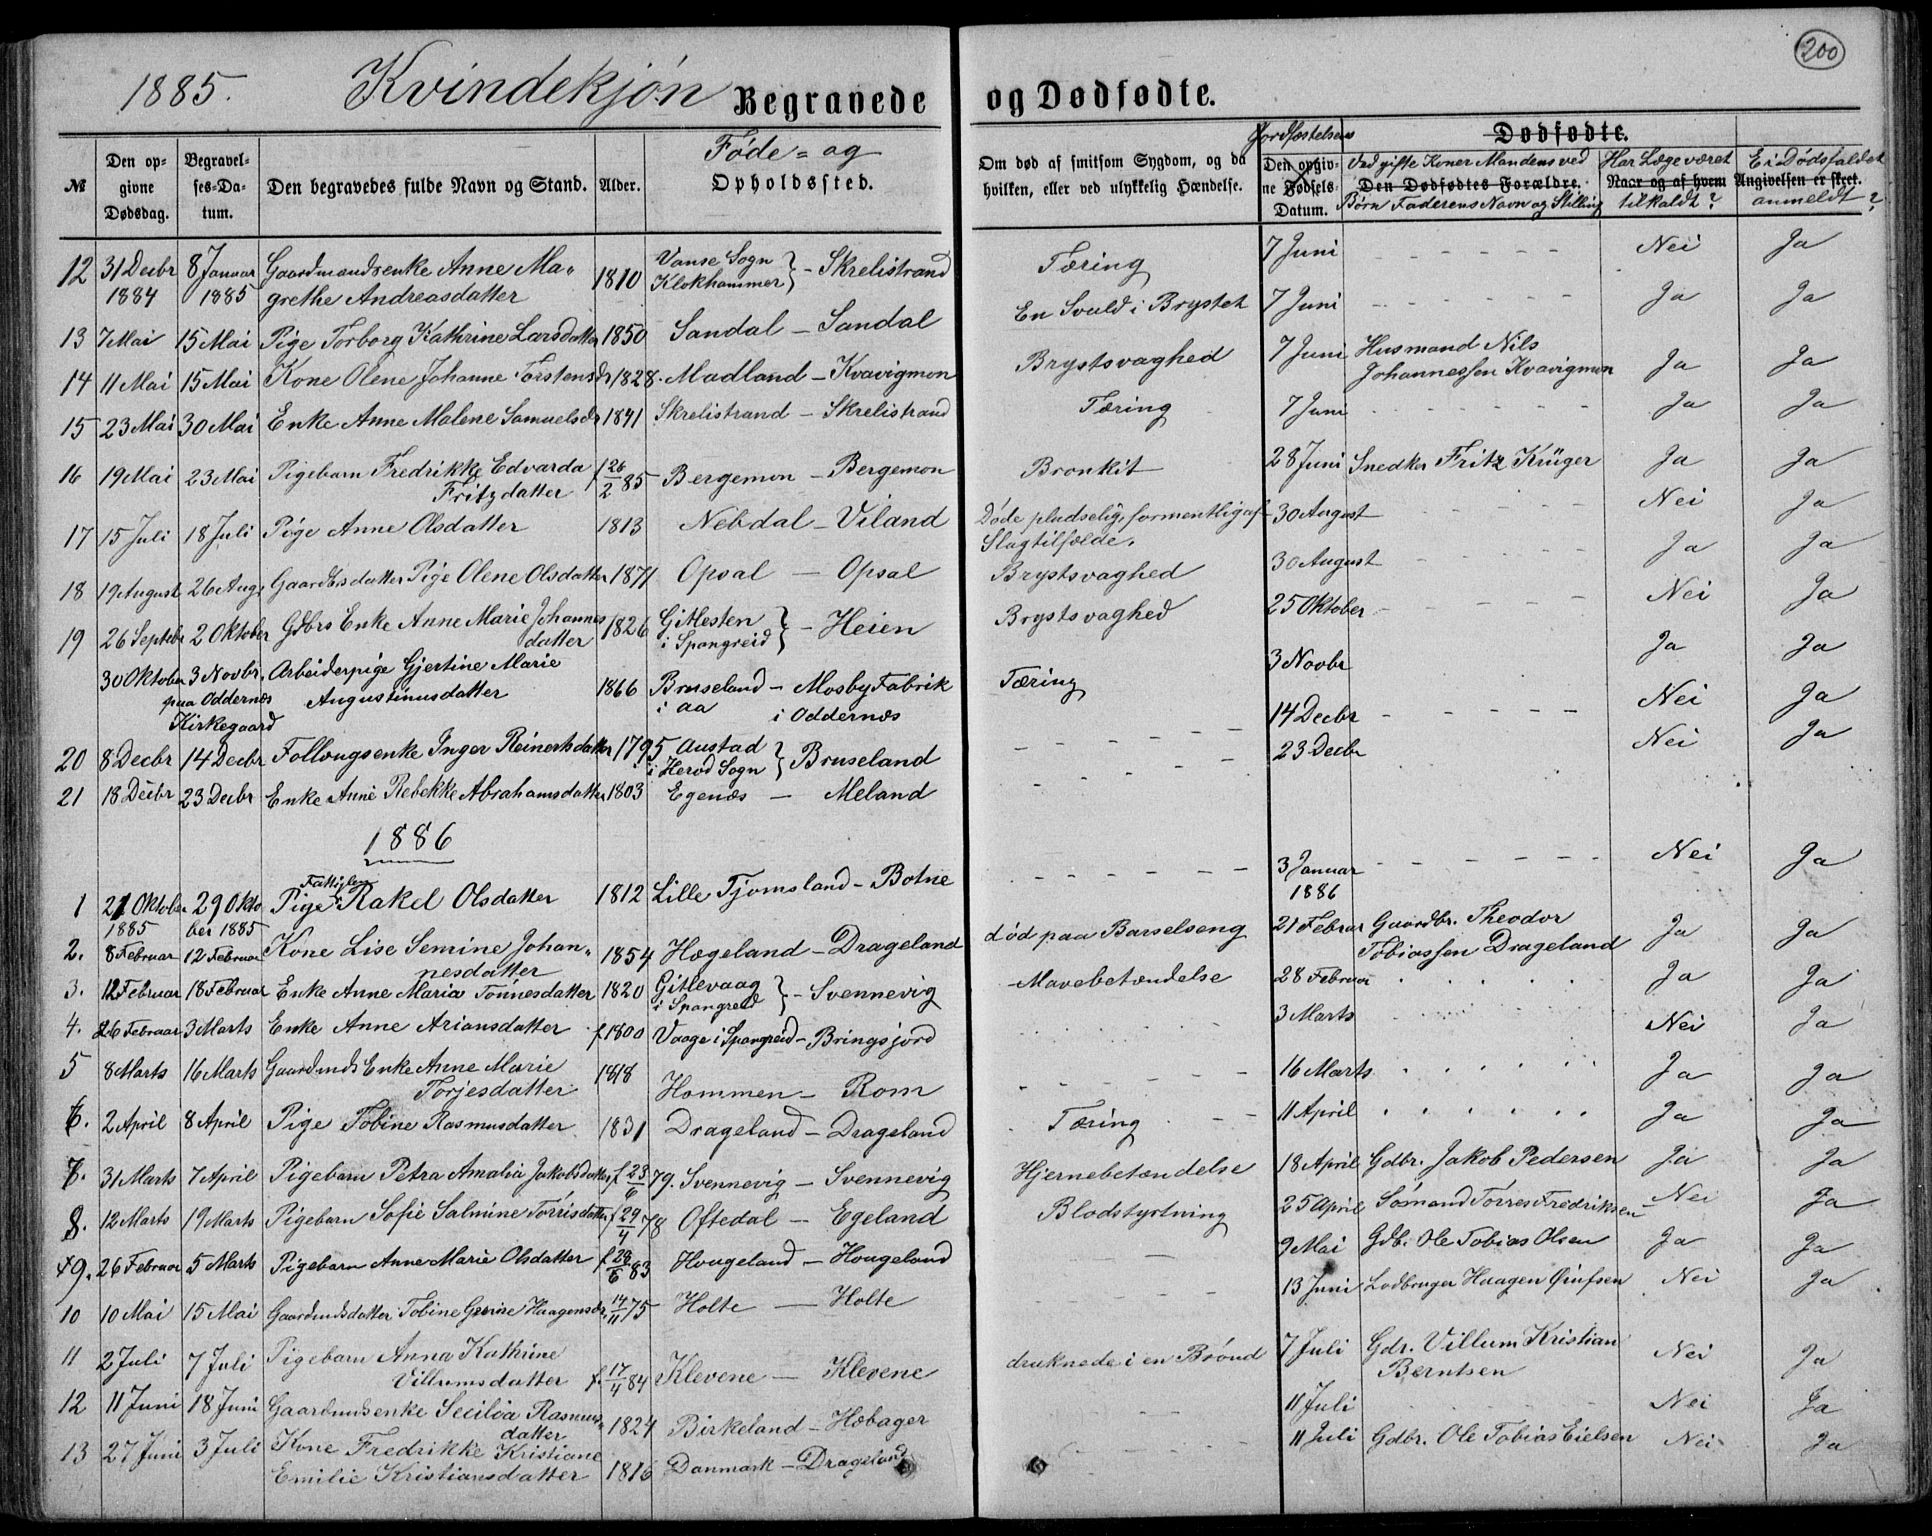 200
1885. Kvindekjøn Begravede og Dødfødte.
№ Den opgivne Dødsdag. Begravelses-Datum. Den begravedes fulde Navn og Stand. Alder. Føde= og Opholdssted. Om død af smitsom Sygdom, og da hvilken, eller ved ulykkelig Hændelse. Jordfæstelsens Den opgivne Fødsels-Datum. Dødfødte. Ved gifte Koner Mandens ved Den Dødfødtes Forældre. Børn Faderens Navn og Stilling Har Læge været Naar og af hvem tilkaldt? Er Dødsfaldet Angivelsen er skeet. anmeldt?
12 31 Decbr 1884 8 Januar 1885 Gaardmandsenke Anne Ma- grethe Andreasdatter 1810 Vanse Sogn Klokhammer } - Skrelistrand Tæring 7 Juni - - - - Nei Ja
13 7 Mai 15 Mai Pige Torborg Kathrine Larsdatter 1850 Sandal - Sandal En Svuld i Brystet 7 Juni - - - - Ja Ja
14 11 Mai 15 Mai Kone Olene Johanne Torstensdr 1828. Madland - Kvavigmon Brystsvaghed 7 Juni Husmand Nils Johannessen Kvavigmon Ja Ja
15 23 Mai 30 Mai Enke Anne Malene Samuelsdr 1841 Skrelistrand - Skrelistrand Tæring 7 Juni - - - - Ja Ja
16 19 Mai 23 Mai Pigebarn Fredrikke Edvarda Fritzdatter f 26/2 85 Bergemon - Bergemon Bronkit 28 Juni Snedker Fritz Krüger Ja Ja
17 15 Juli 18 Juli Pige Anne Olsdatter 1813 Nebdal - Viland Døde pludselig, formentlig af Slagtilfælde. 30 August - - - - Nei Ja
18 19 August 26 Aug. Gaardbrsdatter Pige Olene Olsdatter 1871 Opsal - Opsal Brystsvaghed 30 August - - - - Ja Ja
19 26 Septbr 2 Oktober Gdbrs Enke Anne Marie Johannes datter 1826 Gitlesten i Spangreid } - Heien Brystsvaghed 25 Oktober - - - - Nei Ja
30 Oktober 3 Novbr. paa Oddernæs Kirkegaard Arbeiderpige Gjertine Marie Augustinusdatter 1866 Bruseland i Aa - Mosby Fabrik i Oddernæs Tæring 3 Novbr Ja Ja
20 8 Decbr 14 Decbr Follaugsenke Inger Reinertsdatter 1795 Austad i Herod Sogn } Bruseland - - - - 14 Decbr - - - - Nei Ja
21 18 Decbr 23 Decbr Enke Anne Rebekke Abrahamsdatter 1803 Egenæs - Meland - - - - 23 Decbr Nei Ja
1886
1 21 Oktober 1885 29 Okto ber 1885 Fattiglem Pige Rakel Olsdatter 1812 Lille Tjomsland - Botne - - - - 3 Januar 1886 - - - - Nei Ja
2. 8 Februar 12 Februar Kone Lise Semine Johan- nesdatter 1854 Hægeland - Drageland død paa Barselseng 21 Februar Gaardbr. Theodor Tobiassen Drageland Ja Ja
3. 12 Februar 18 Februar Enke Anne Maria Tønnesdatter 1820 Gitlevaag i Spangreid } - Svennevig Mavebetændelse 28 Februar . . . . Ja Ja
4. 26 Februar 3 Marts Enke Anne Ariansdatter f 1800 Vaage i Spangreid - Bringsjord - - - - 3 Marts . . . . Nei Ja
5 8 Marts 16 Marts Gaardmds Enke Anne Marie Torjesdatter 1818 Hommen - Rom - - - - 16 Marts . . . . Ja Ja
6. 2 April 8 April Pige Tobine Rasmusdatter 1831 Drageland - Drageland Tæring 11 April . . . . Ja Ja
7. 31 Marts 7 April Pigebarn Petra Amalia Jakobsdatter f 23/6 79. Svennevig - Svennevig Hjernebetændelse 18 April Gdbr. Jakob Pedersen Ja Ja
8. 12 Marts 19 Marts Pigebarn Sofie Salmine Torrisdatter f 29/4 78 Oftedal - Egeland Blodstyrtning 25 April Sømand Torres Fredriksen Nei Ja
9. 26 Februar 5 Marts Pigebarn Anne Marie Olsdatter f 28/6 83 Hougeland - Hougeland - 9 Mai Gdb. Ole Tobias Olsen Ja Ja
10 10 Mai 15 Mai Gaardmdsdatter Tobine Gurine Haagensdr. 14/11 75 Holte - Holte - - - 13 Juni Lodbruger Haagen Nei Ja
11 2 Juli 7 Juli Pigebarn Anna Kathrine Villumsdatter f. 17/4 84 Klevene - Klevene druknede i en Brønd 7 Juli Gdr. Villum Kristian Berntsen Nei Ja
12 11 Juni 18 Juni Gaardmdsenke Secilia Rasmus- datter 1824 Birkeland - Hæbager - - - - 11 Juli Nei Ja
13 27 Juni 3 Juli Kone Fredrikke Kristiane Emilie Kristiansdatter 1816 Danmark - Drageland - - - - 11 Juli Gdbr. Ole Tobias Eielsen Nei Ja